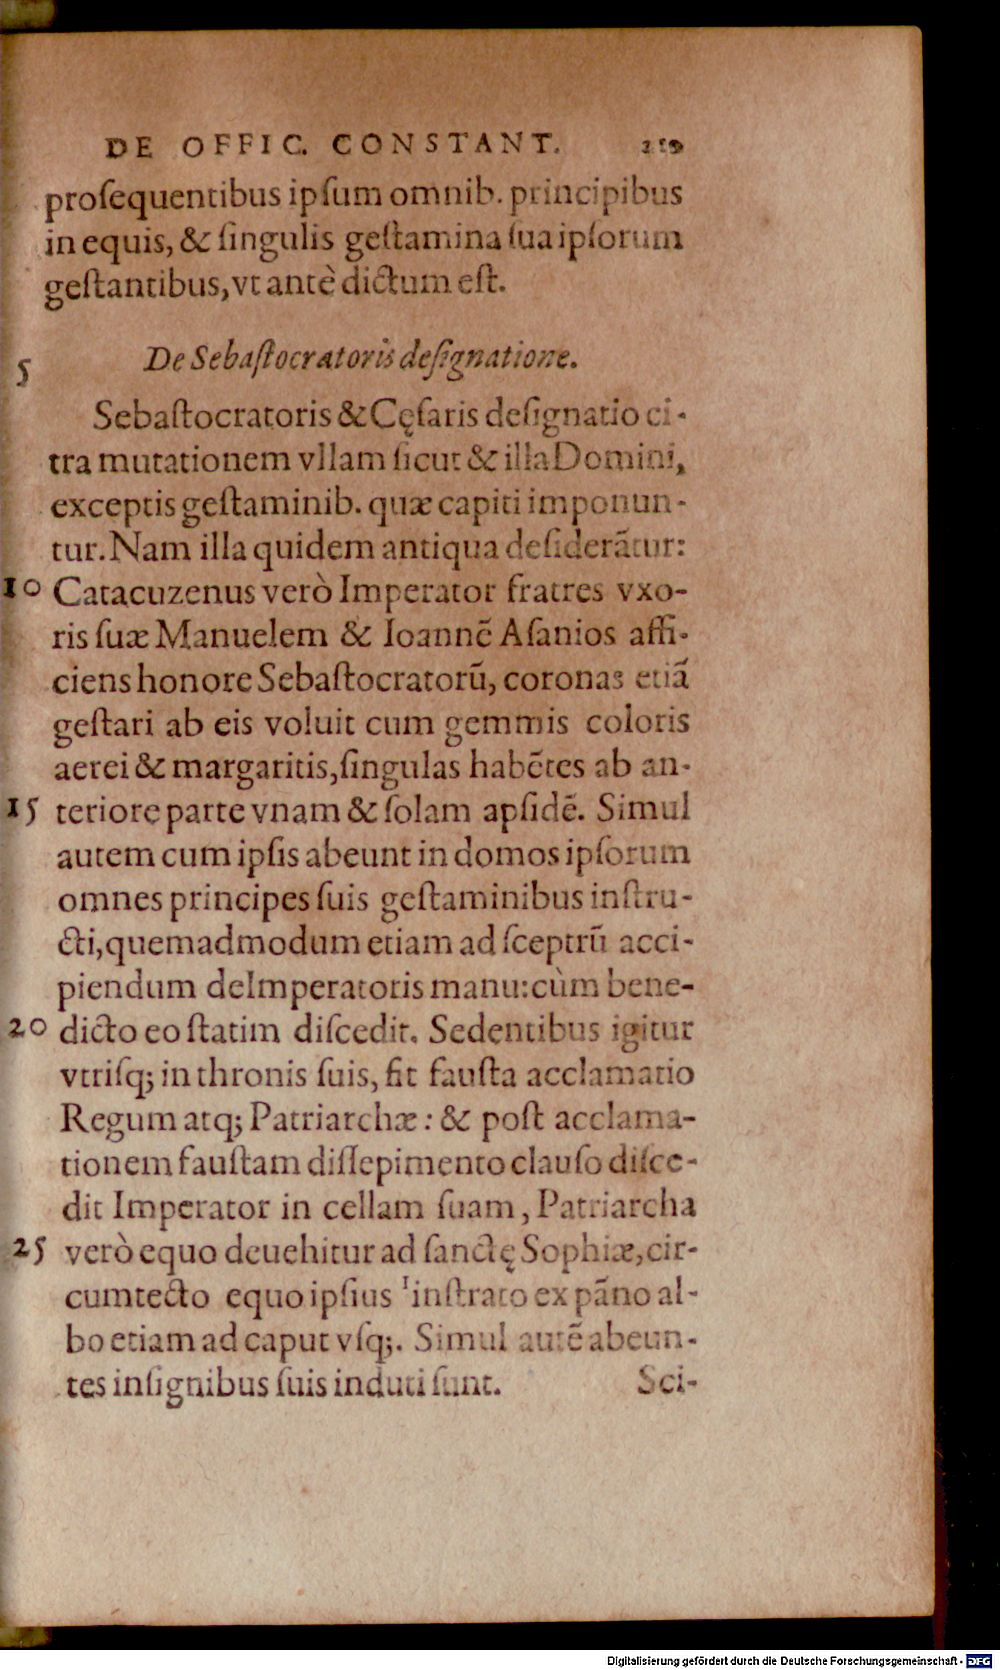 DE OFFIC. CONSTANT. 219
proſequentibus ipſum omnib. principibus
in equis, & ſingulis geſtamina ſua ipſorum
geſtantibus, vt antè dictum eſt.
5 De Sebaſtocratoris deſignatione.
Sebaſtocratoris & Cęſaris deſignatio ci-
tra mutationem vllam ſicut & illa Domini,
exceptis geſtaminib. quæ capiti imponun-
tur. Nam illa quidem antiqua deſiderãtur:
10 Catacuzenus verò Imperator fratres vxo-
ris ſuæ Manuelem & Ioannẽ Aſanios affi-
ciens honore Sebaſtocratorũ, coronas etiã
geſtari ab eis voluit cum gemmis coloris
aerei & margaritis, ſingulas habẽtes ab an-
15 teriore parte vnam & ſolam apſidẽ. Simul
autem cum ipſis abeunt in domos ipſorum
omnes principes ſuis geſtaminibus inſtru-
cti, quemadmodum etiam ad ſceptrũ acci-
piendum de Imperatoris manu: cùm bene-
20 dicto eo ſtatim diſcedit. Sedentibus igitur
vtriſq; in thronis ſuis, fit fauſta acclamatio
Regum atq; Patriarchæ: & poſt acclama-
tionem fauſtam diſſepimento clauſo diſce-
dit Imperator in cellam ſuam, Patriarcha
25 verò equo deuehitur ad ſanctę Sophiæ, cir-
cumtecto equo ipſius ¹inſtrato ex pãno al-
bo etiam ad caput vſq;. Simul autẽ abeun-
tes inſignibus ſuis induti ſunt. Sci-
Digitalisierung gefördert durch die Deutsche Forschungsgemeinschaft - DFG